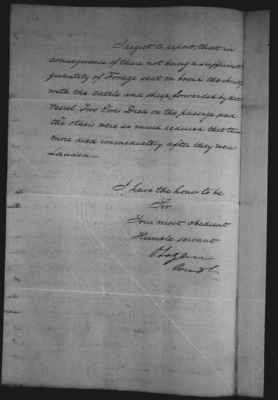 I regret to report, that in
consequence of there not being a sufficient
quantity of Forage sent on board the
with the cattle and sheep forwarded by that
Vessel, Two Died on the passage and
the others were so much reduced that two
more died immediately after they were
Landed.—
I have the honor to be
Sir
Your most obedient
Humble servant